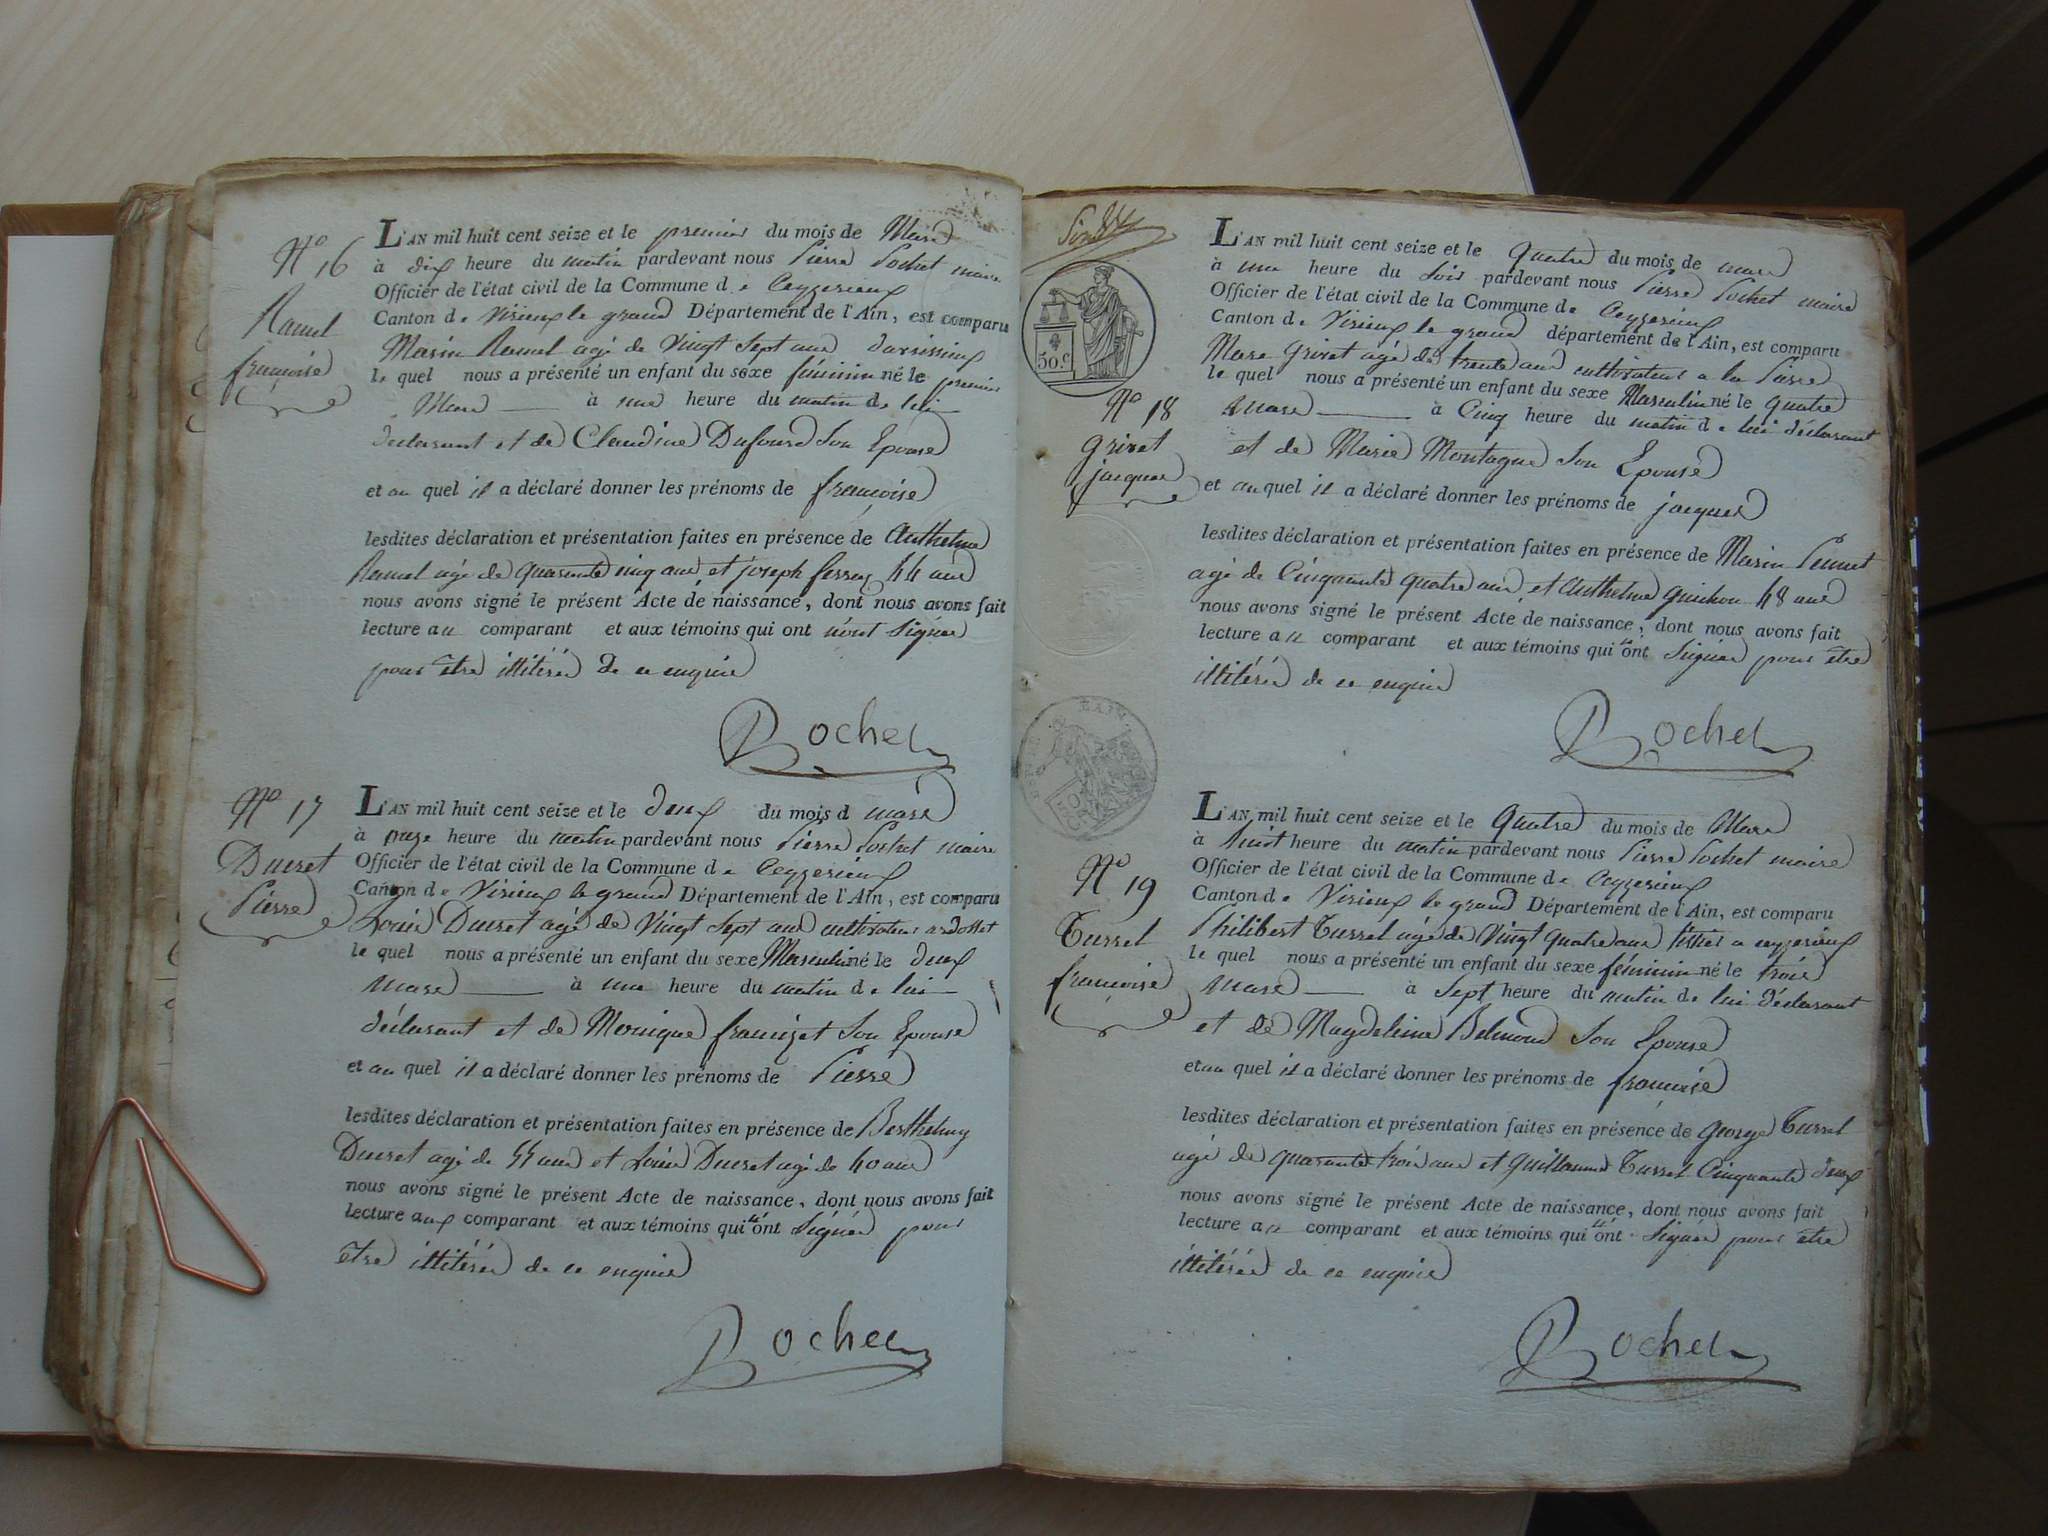 N° 16
Ramel
françoise
L'AN mil huit cent seize et le premier du mois de Mars
à dix heure du matin pardevant nous Pierre Pochet maire
Officier de l'état civil de la Commune de Ceyzerieux
Canton de Virieux le grand Département de l'Ain, est comparu
Marin Ramel agé de Vingt Sept ans
le quel nous a présenté un enfant du sexe féminin né le premier
Mars à une heure du matin de lui
déclarant et de Claudine Dufour Son Epouse
et au quel il a déclaré donner les prénoms de françoise
lesdites déclaration et présentation faites en présence de Anthelme
Ramel agé de quarante cinq ans et joseph 44 ans
nous avons signé le présent Acte de naissance, dont nous avons fait
lecture au comparant et aux témoins qui ont n'ont Signer
pour être illitéré de ce enquis
Rochet
N° 17
Ducret
Pierre
L'AN mil huit cent seize et le deux du mois d mars
à onze heure du matin pardevant nous Pierre Pochet maire
Officier de l'état civil de la Commune de Ceyzerieux
Canton de Virieux le grand Département de l'Ain, est comparu
Louis Ducret agé de Vingt Sept ans cultivateur
le quel nous a présenté un enfant du sexe Masculin né le deux
mars à une heure du matin de lui
déclarant et de Monique françizet Son Epouse
et au quel il a déclaré donner les prénoms de Pierre
lesdites déclaration et présentation faites en présence de Berthelmy
Ducret agé de 55 ans et Louis Ducret agé de 40 ans
nous avons signé le présent Acte de naissance, dont nous avons fait
lecture aux comparant et aux témoins qui n'ont Signer pour
être illitéré de ce enquis
Rochet
50 c.
N° 18
Grivet
jacques
L'AN mil huit cent seize et le Quatre du mois de mars
à une heure du Soir pardevant nous Pierre Pochet maire
Officier de l'état civil de la Commune de Ceyzerieux
Canton de Virieux le grand département de l'Ain, est comparu
Marc Grivet agé de trente ans cultivateur a la Pierre
le quel nous a présenté un enfant du sexe Masculin né le Quatre
mars à Cinq heure du matin de lui déclarant
et de Marie Montagne Son Epouse
et au quel il a déclaré donner les prénoms de jacques
lesdites déclaration et présentation faites en présence de Marin
agé de Cinquante quatre ans et Anthelme Guichon 48 ans
nous avons signé le présent Acte de naissance, dont nous avons fait
lecture au comparant et aux témoins qui n'ont Signer pour être
illitéré de ce enquis
Rochet
N° 19
Turrel
françoise
L'AN mil huit cent seize et le Quatre du mois de Mars
à huit heure du matin pardevant nous Pierre Pochet maire
Officier de l'état civil de la Commune de Ceyzerieux
Canton de Virieux le grand Département de l'Ain, est comparu
Philibert Turrel agé de Vingt quatre ans tissier a ceyzerieux
le quel nous a présenté un enfant du sexe féminin né le trois
mars à Sept heure du matin de lui déclarant
et de Magdeleine Belmond Son Epouse
et au quel il a déclaré donner les prénoms de françoise
lesdites déclaration et présentation faites en présence de George Turrel
agé de quarante trois ans et Guillaume Turrel Cinquante deux
nous avons signé le présent Acte de naissance, dont nous avons fait
lecture au comparant et aux témoins qui n'ont Signer pour être
illitéré de ce enquis
Rochet